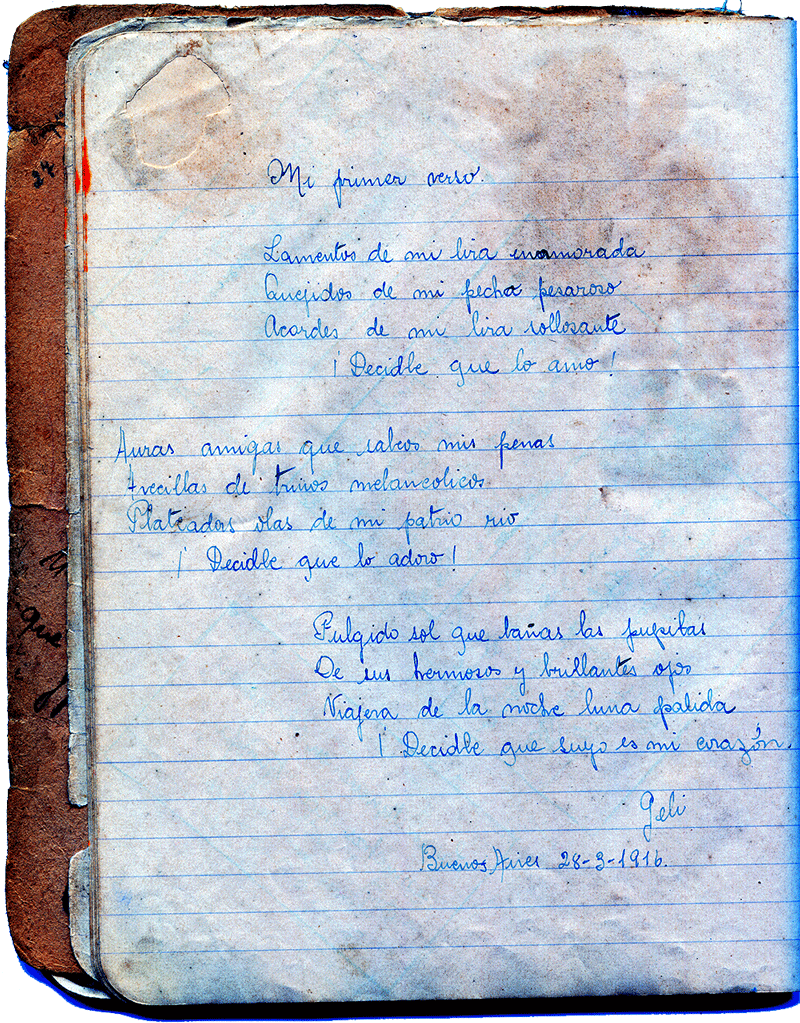 Mi primer verso.
Lamentos de mi lira enamorada
Quejidos de mi pecho pesaroso
Acordes de mi lira sollosante
¡Decidle que lo amo!
Auras amigas que sabeis mis penas
Avecillas de trinos melancolicos
Plateadas olas de mi patrio rio
¡Decidle que lo adoro!
Fulgido sol que bañas las pupilas
De sus hermosos y brillantes ojos
Viajera de la noche luna palida
¡Decidle que suyo es mi corazón.
Geli
Buenos Aires 28-3-1916.
24
que